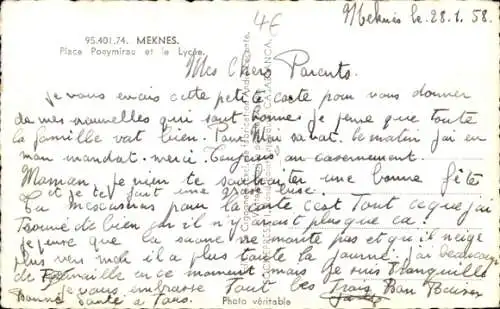 4€
Meknès le 28.1.58
95.401.74. MEKNES.
Place Poeymirau et le Lycée.
Mes Chers Parents.
Je vous envoie cette petite carte pour vous donner
de mes nouvelles qui sont bonnes je pense que toute
la famille vat bien. Pour Moi sa vat. le matin j'ai eu
mon mandat. merci. Toujours au casernement.
Maman je vien te souhaiter une bonne fête
et je te fait une grosse bise.
Tu mescuseras pour la carte c'est Tout ce que j'ai
Trouvé de bien car il n'y avait plus que ca!
Je pense que la saone ne monte pas et qu'il neige
plus ven moi il a plus toute la journé. j'ai beaucoup
de travaille en ce moment mais je suis tranquille
je vous embrasse Tout les Trois Bon Baiser
Bonne Santé a Tous.
Photo véritable